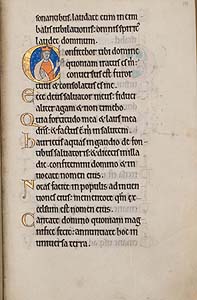 sonantibus. laudate eum in cym
balis iubilationis: omnis spiritus
laudet dominum.
Confitebor tibi domine
quoniam iratus es m
conuersus est furor
tuus et consolatus es me.
Ecce deus saluator meus: fiduci
aliter agam et non timebo
Quia fortitudo mea et laus mea
dns: et factus e m in salutem.
Haurietis aquas in gaudio de fon
tibus saluatoris: et dicetis in illa
die confitemini domino et in
uocate nomen eius.
Notas facite in populis ad inuen
tiones eius: mementote qm ex
celsum est nomen eius.
Cantate domino quoniam mag
nifice fecit: annuntiate hoc in
uniuersa terra.